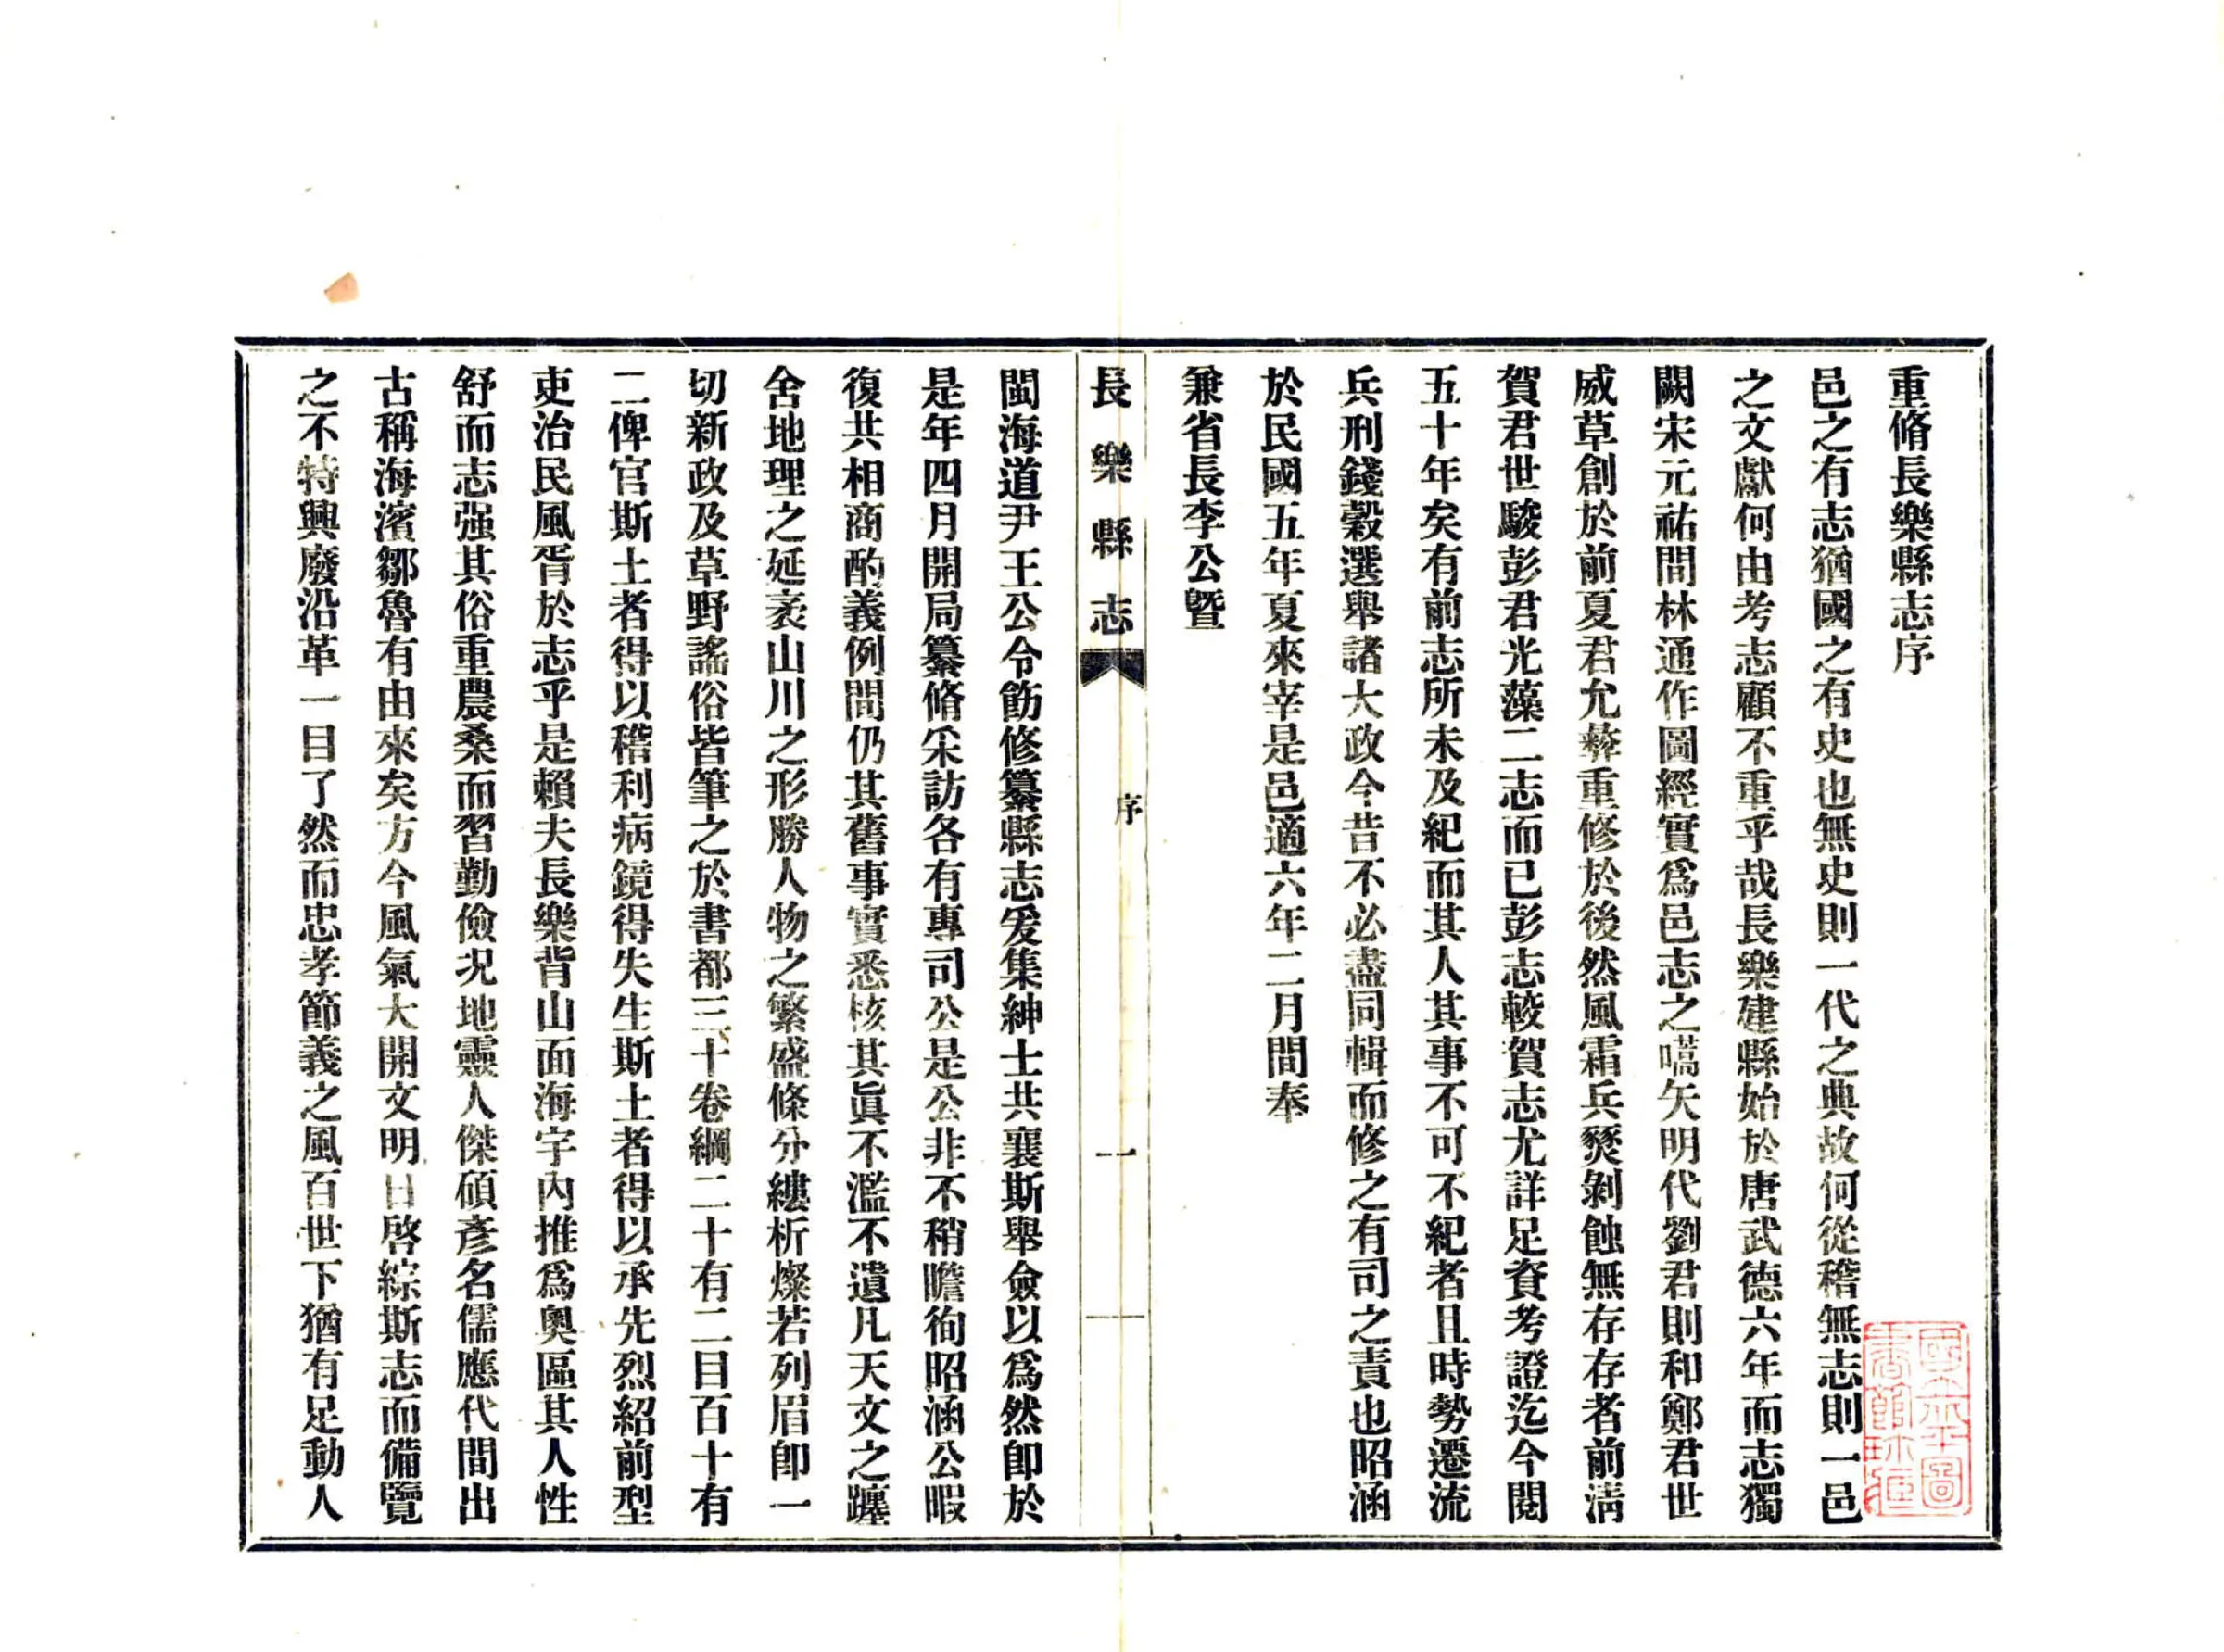 重脩長樂縣志序
邑之有志猶國之有史也無史則一代之典故何從稽無志則一邑
之文獻何由考志顧不重乎哉長樂建縣始於唐武德六年而志獨
闕宋元祐間林通作圖經實爲邑志之嚆矢明代劉君則和鄭君世
威草創於前夏君允彝重修於後然風霜兵燹剝蝕無存存者前淸
賀君世駿彭君光藻二志而已彭志較賀志尤詳足資考證迄今閱
五十年矣有前志所未及紀而其人其事不可不紀者且時勢遷流
兵刑錢穀選舉諸大政今昔不必盡同輯而修之有司之責也昭涵
於民國五年夏來宰是邑適六年二月間奉
兼省長李公曁
長樂縣志
序
一
閩海道尹王公令飭修纂縣志爰集紳士共襄斯舉僉以爲然卽於
是年四月開局纂脩采訪各有專司公是公非不稍瞻徇昭涵公暇
復共相商酌義例間仍其舊事實悉核其眞不濫不遺凡天文之躔
舍地理之延袤山川之形勝人物之繁盛條分縷析燦若列眉卽一
切新政及草野謠俗皆筆之於書都三十卷綱二十有二目百十有
二俾官斯土者得以稽利病鏡得失生斯土者得以承先烈紹前型
吏治民風胥於志乎是賴夫長樂背山面海宇內推爲奧區其人性
舒而志强其俗重農桑而習勤儉况地靈人傑碩彥名儒應代間出
古稱海濱鄒魯有由來矣方今風氣大開文明日啓綜斯志而備覽
之不特興廢沿革一目了然而忠孝節義之風百世下猶有足動人